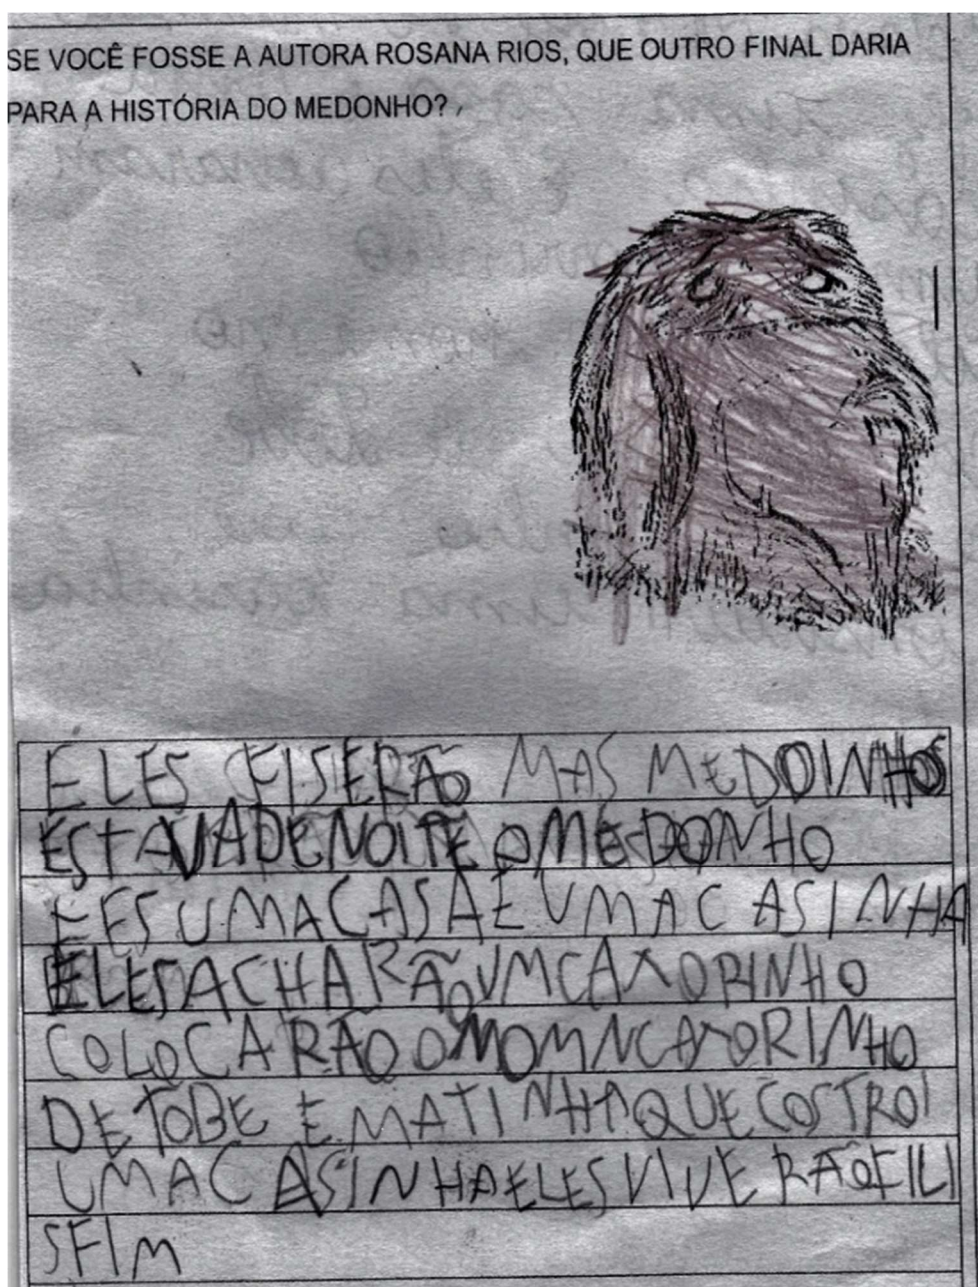 SE VOCÊ FOSSE A AUTORA ROSANA RIOS, QUE OUTRO FINAL DARIA
PARA A HISTÓRIA DO MEDONHO?
ELES FISERÃO MAS MEDOINHOS
ESTAVA DE NOITE O MEDONHO
FES UMA CASA E UMA CASINHA
ELES ACHARÃO UM CAXORINHO
COLOCARÃO O NOM N CAXORINHO
DE TOBE E MATINHA QUE COSTROI
UMA CASINHA ELES VIVERÃO FILI
S FIM